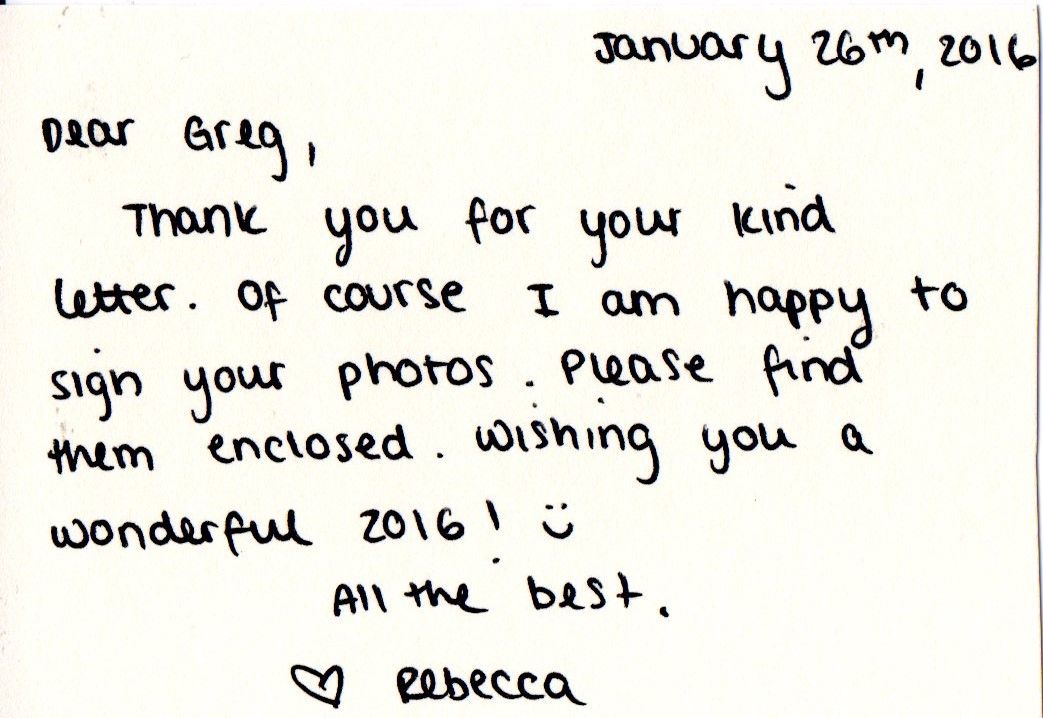 January 26th, 2016
Dear Greg,
Thank you for your kind
letter. Of course I am happy to
sign your photos. Please find
them enclosed. Wishing you a
wonderful 2016! ü
All the best.
♡ Rebecca